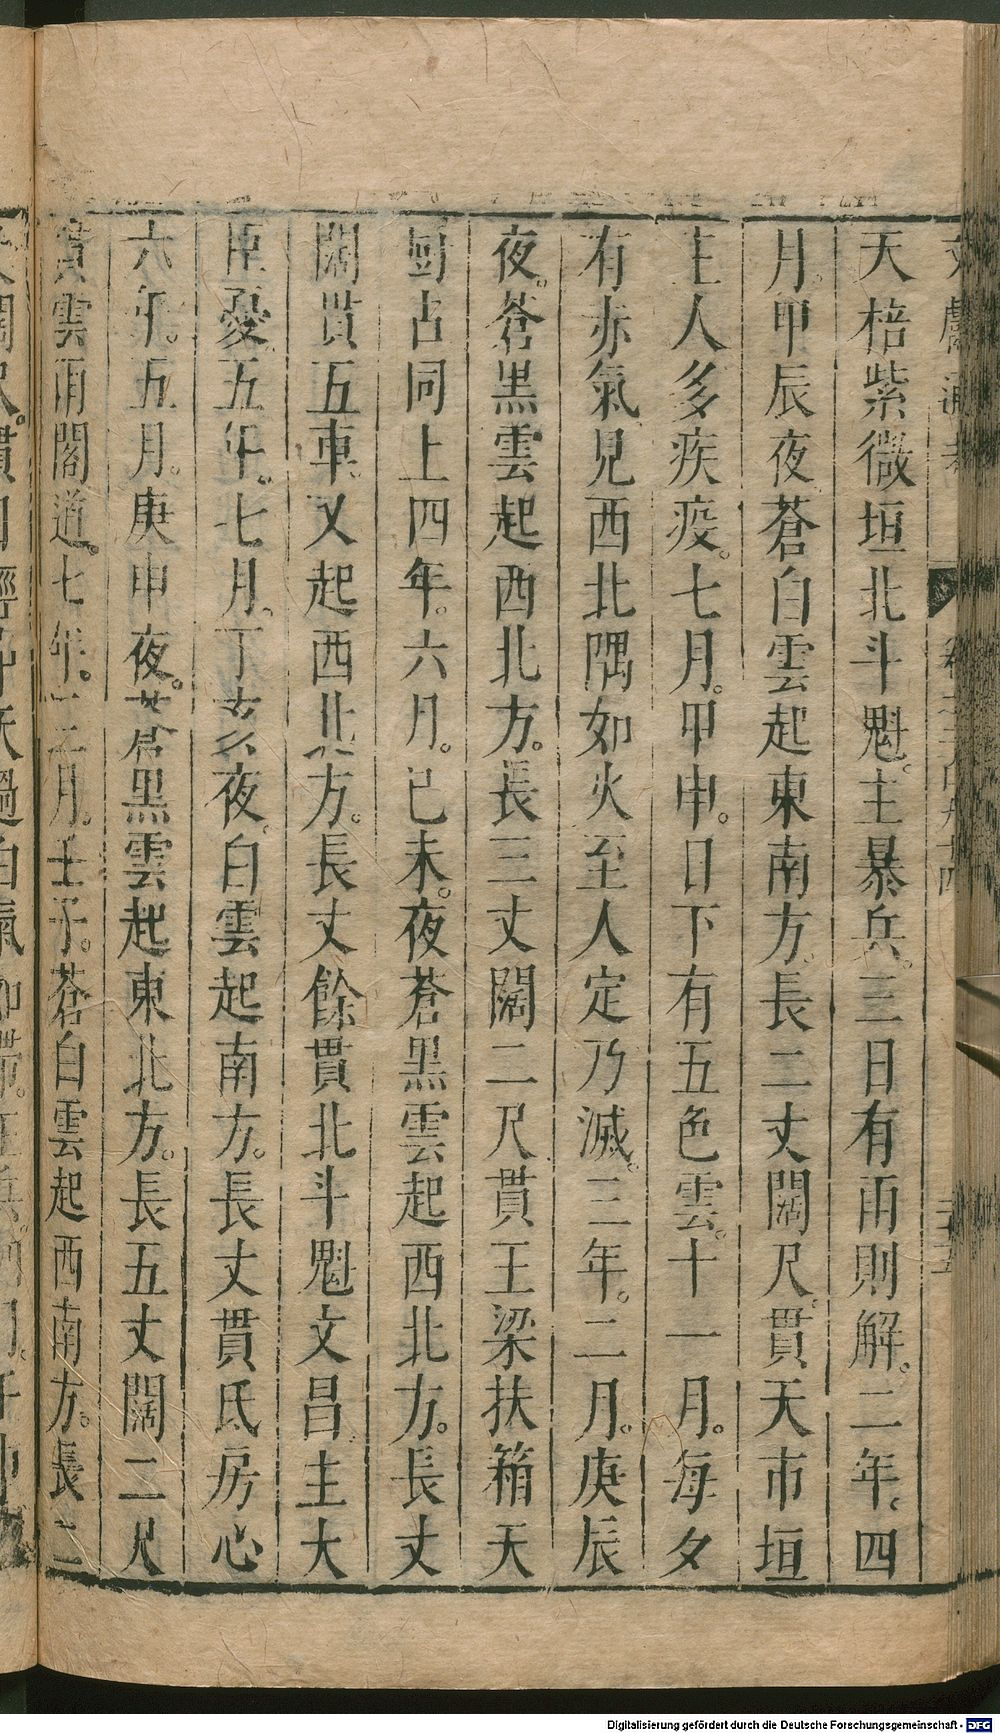 天棓紫微垣北斗魁。主暴兵。三日有雨則解。二年。四
月。甲辰夜。蒼白雲起東南方。長二丈闊尺。貫天市垣
主人多疾疫。七月。甲申。日下有五色雲。十一月。每夕
有赤氣見西北隅如火至人定乃滅。三年。二月。庚辰
夜。蒼黑雲起西北方。長三丈闊二尺貫王梁扶箱天
厨占同上四年。六月。己未。夜蒼黑雲起西北方。長丈
闊貫五車。又起西北方。長丈餘貫北斗魁文昌主大
臣憂。五年。七月。丁亥夜。白雲起南方。長丈貫氐房心
六年。五月。庚申夜。蒼黑雲起東北方。長五丈闊二尺
貫雲雨閣道。七年。三月。壬子。蒼白雲起西南方。長二
Digitalisierung gefördert durch die Deutsche Forschungsgemeinschaft - DFG